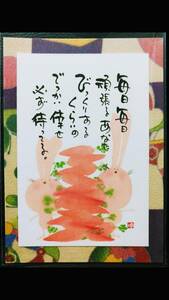 毎日毎日
頑張るあなた
びっくりする
くらいの
でっかい倖せ
必ず待ってるよ。